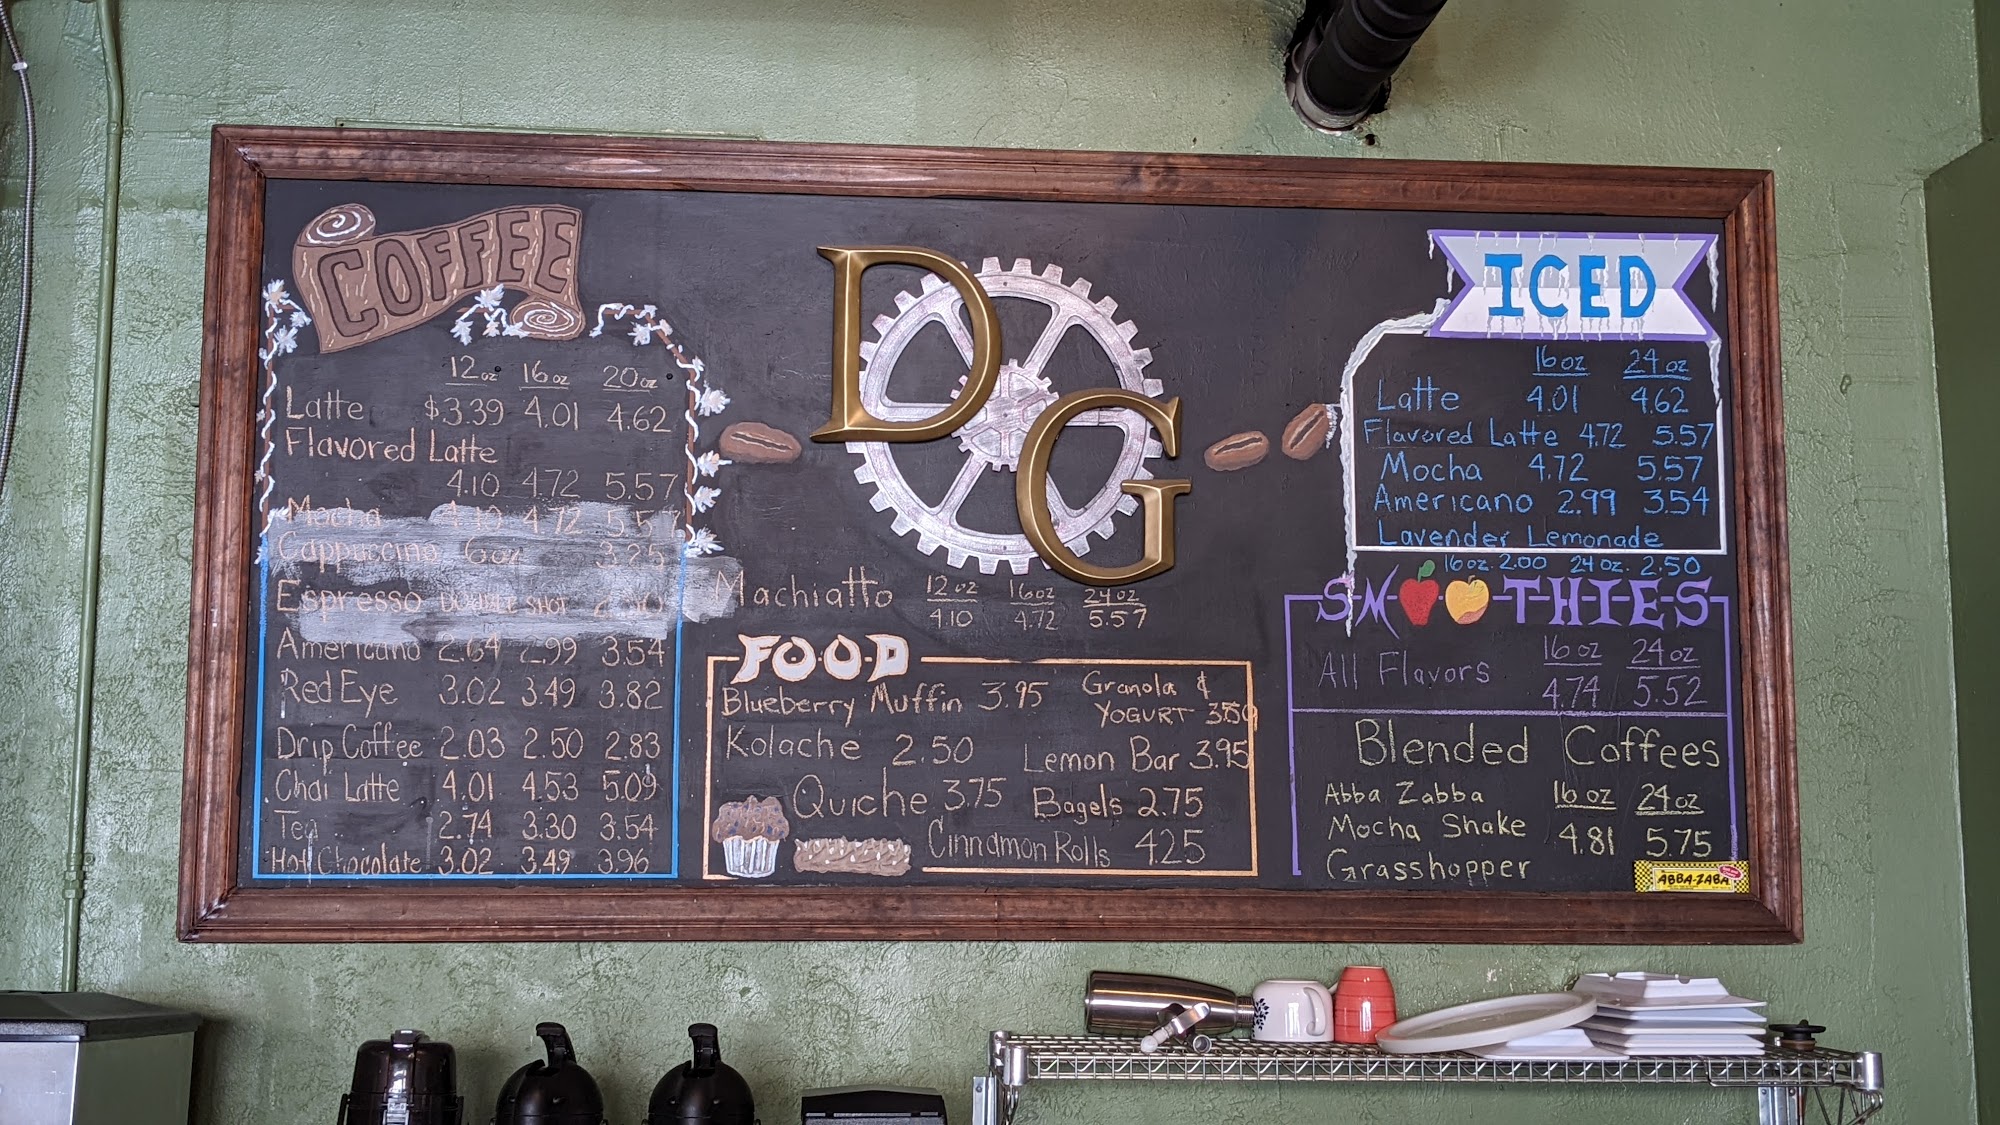 COFFEE
12oz 16oz 20oz
Latte $3.39 4.01 4.62
Flavored Latte
4.10 4.72 5.57
Mocha 4.10 4.72 5.57
Cappuccino 6oz 3.25
Espresso DOUBLE SHOT
Americano 2.64 2.99 3.54
Red Eye 3.02 3.49 3.82
Drip Coffee 2.03 2.50 2.83
Chai Latte 4.01 4.53 5.09
Tea 2.74 3.30 3.54
Hot Chocolate 3.02 3.49 3.96
DG
Machiatto 12oz 16oz 24oz
4.10 4.72 5.57
FOOD
Blueberry Muffin 3.95
Kolache 2.50
Quiche 3.75
Granola &
YOGURT
Lemon Bar 3.95
Bagels 2.75
Cinnamon Rolls 4.25
ICED
16oz 24oz
Latte 4.01 4.62
Flavored Latte 4.72 5.57
Mocha 4.72 5.57
Americano 2.99 3.54
Lavender Lemonade
16oz. 2.00 24oz. 2.50
SMOOTHIES
16oz 24oz
All Flavors 4.74 5.52
Blended Coffees
Abba Zabba 16oz 24oz
Mocha Shake 4.81 5.75
Grasshopper
ABBA-ZABA